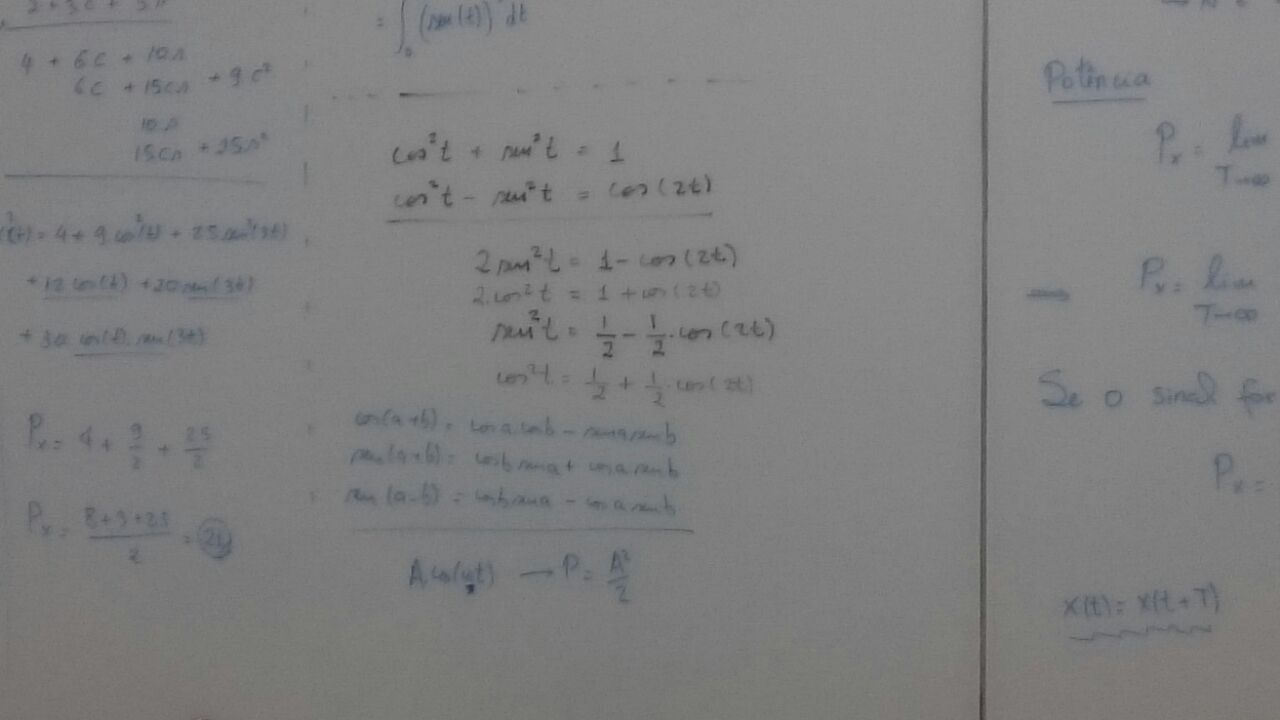 2 + 3c + 5s
4 + 6c + 10s
6c + 15cs + 9c²
10s
15cs + 25s²
(t) = 4 + 9 cos²(t) + 25 sen²(3t)
+ 12 cos(t) + 20 sen(3t)
+ 30 cos(t). sen(3t)
Pₓ = 4 + 9/2 + 25/2
Pₓ = 8+9+25/2 = 21
= ∫₀ (sen(t))² dt
cos²t + sen²t = 1
cos²t - sen²t = cos(2t)
2 sen²t = 1 - cos(2t)
2.cos²t = 1 + cos(2t)
sen²t = 1/2 - 1/2 . cos(2t)
cos²t = 1/2 + 1/2 . cos(2t)
cos(a+b) = cosa cosb - sena senb
sen(a+b) = cosb sena + cosa senb
sen(a-b) = cosb sena - cosa senb
A cos(ω₀t) → P = A²/2
Potência
Pₓ = lim T→∞
→ Pₓ = lim T→∞
Se o sinal for
Pₓ =
x(t) = x(t+T)